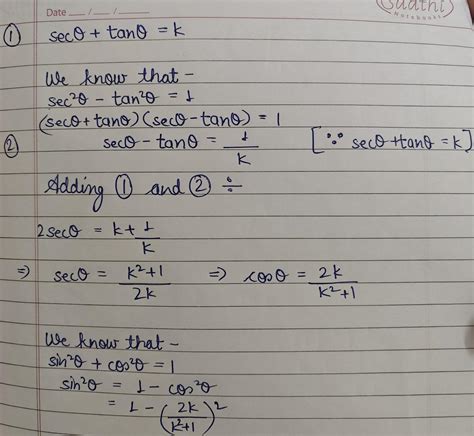 Date __/__/__
Saathi
Notebooks
① secθ + tanθ = k
We know that –
sec²θ – tan²θ = 1
(secθ + tanθ)(secθ – tanθ) = 1
② secθ – tanθ = 1/k [∵ secθ + tanθ = k]
Adding ① and ② ÷
2secθ = k + 1/k
⇒ secθ = (k²+1)/2k ⇒ cosθ = 2k/(k²+1)
We know that –
sin²θ + cos²θ = 1
sin²θ = 1 – cos²θ
= 1 – (2k/(k²+1))²